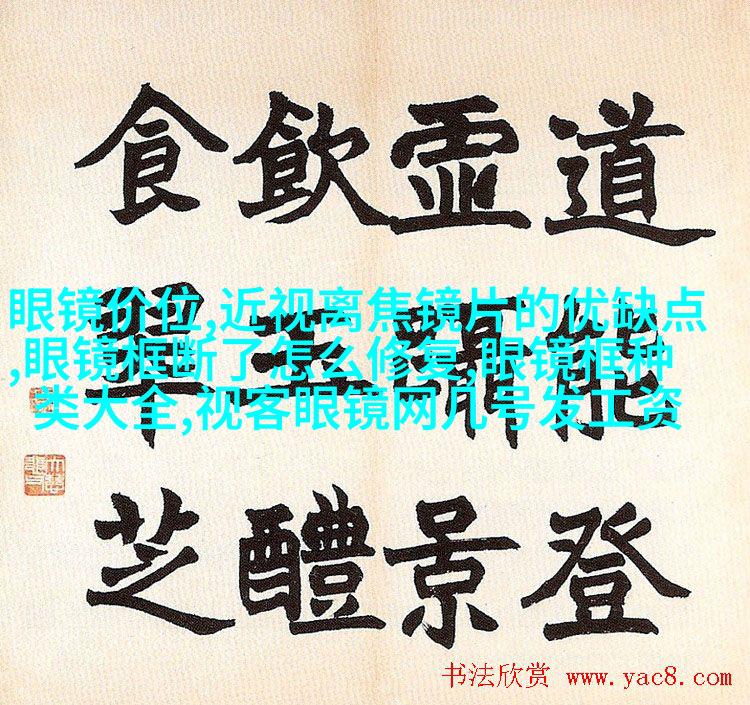 道能登
景
飲玉醴
食翠芝
眼镜价位,近视离焦镜片的优缺点
,眼镜框断了怎么修复,眼镜框种
类大全,视客眼镜网几号发工资
书法欣赏 www.yac8.com